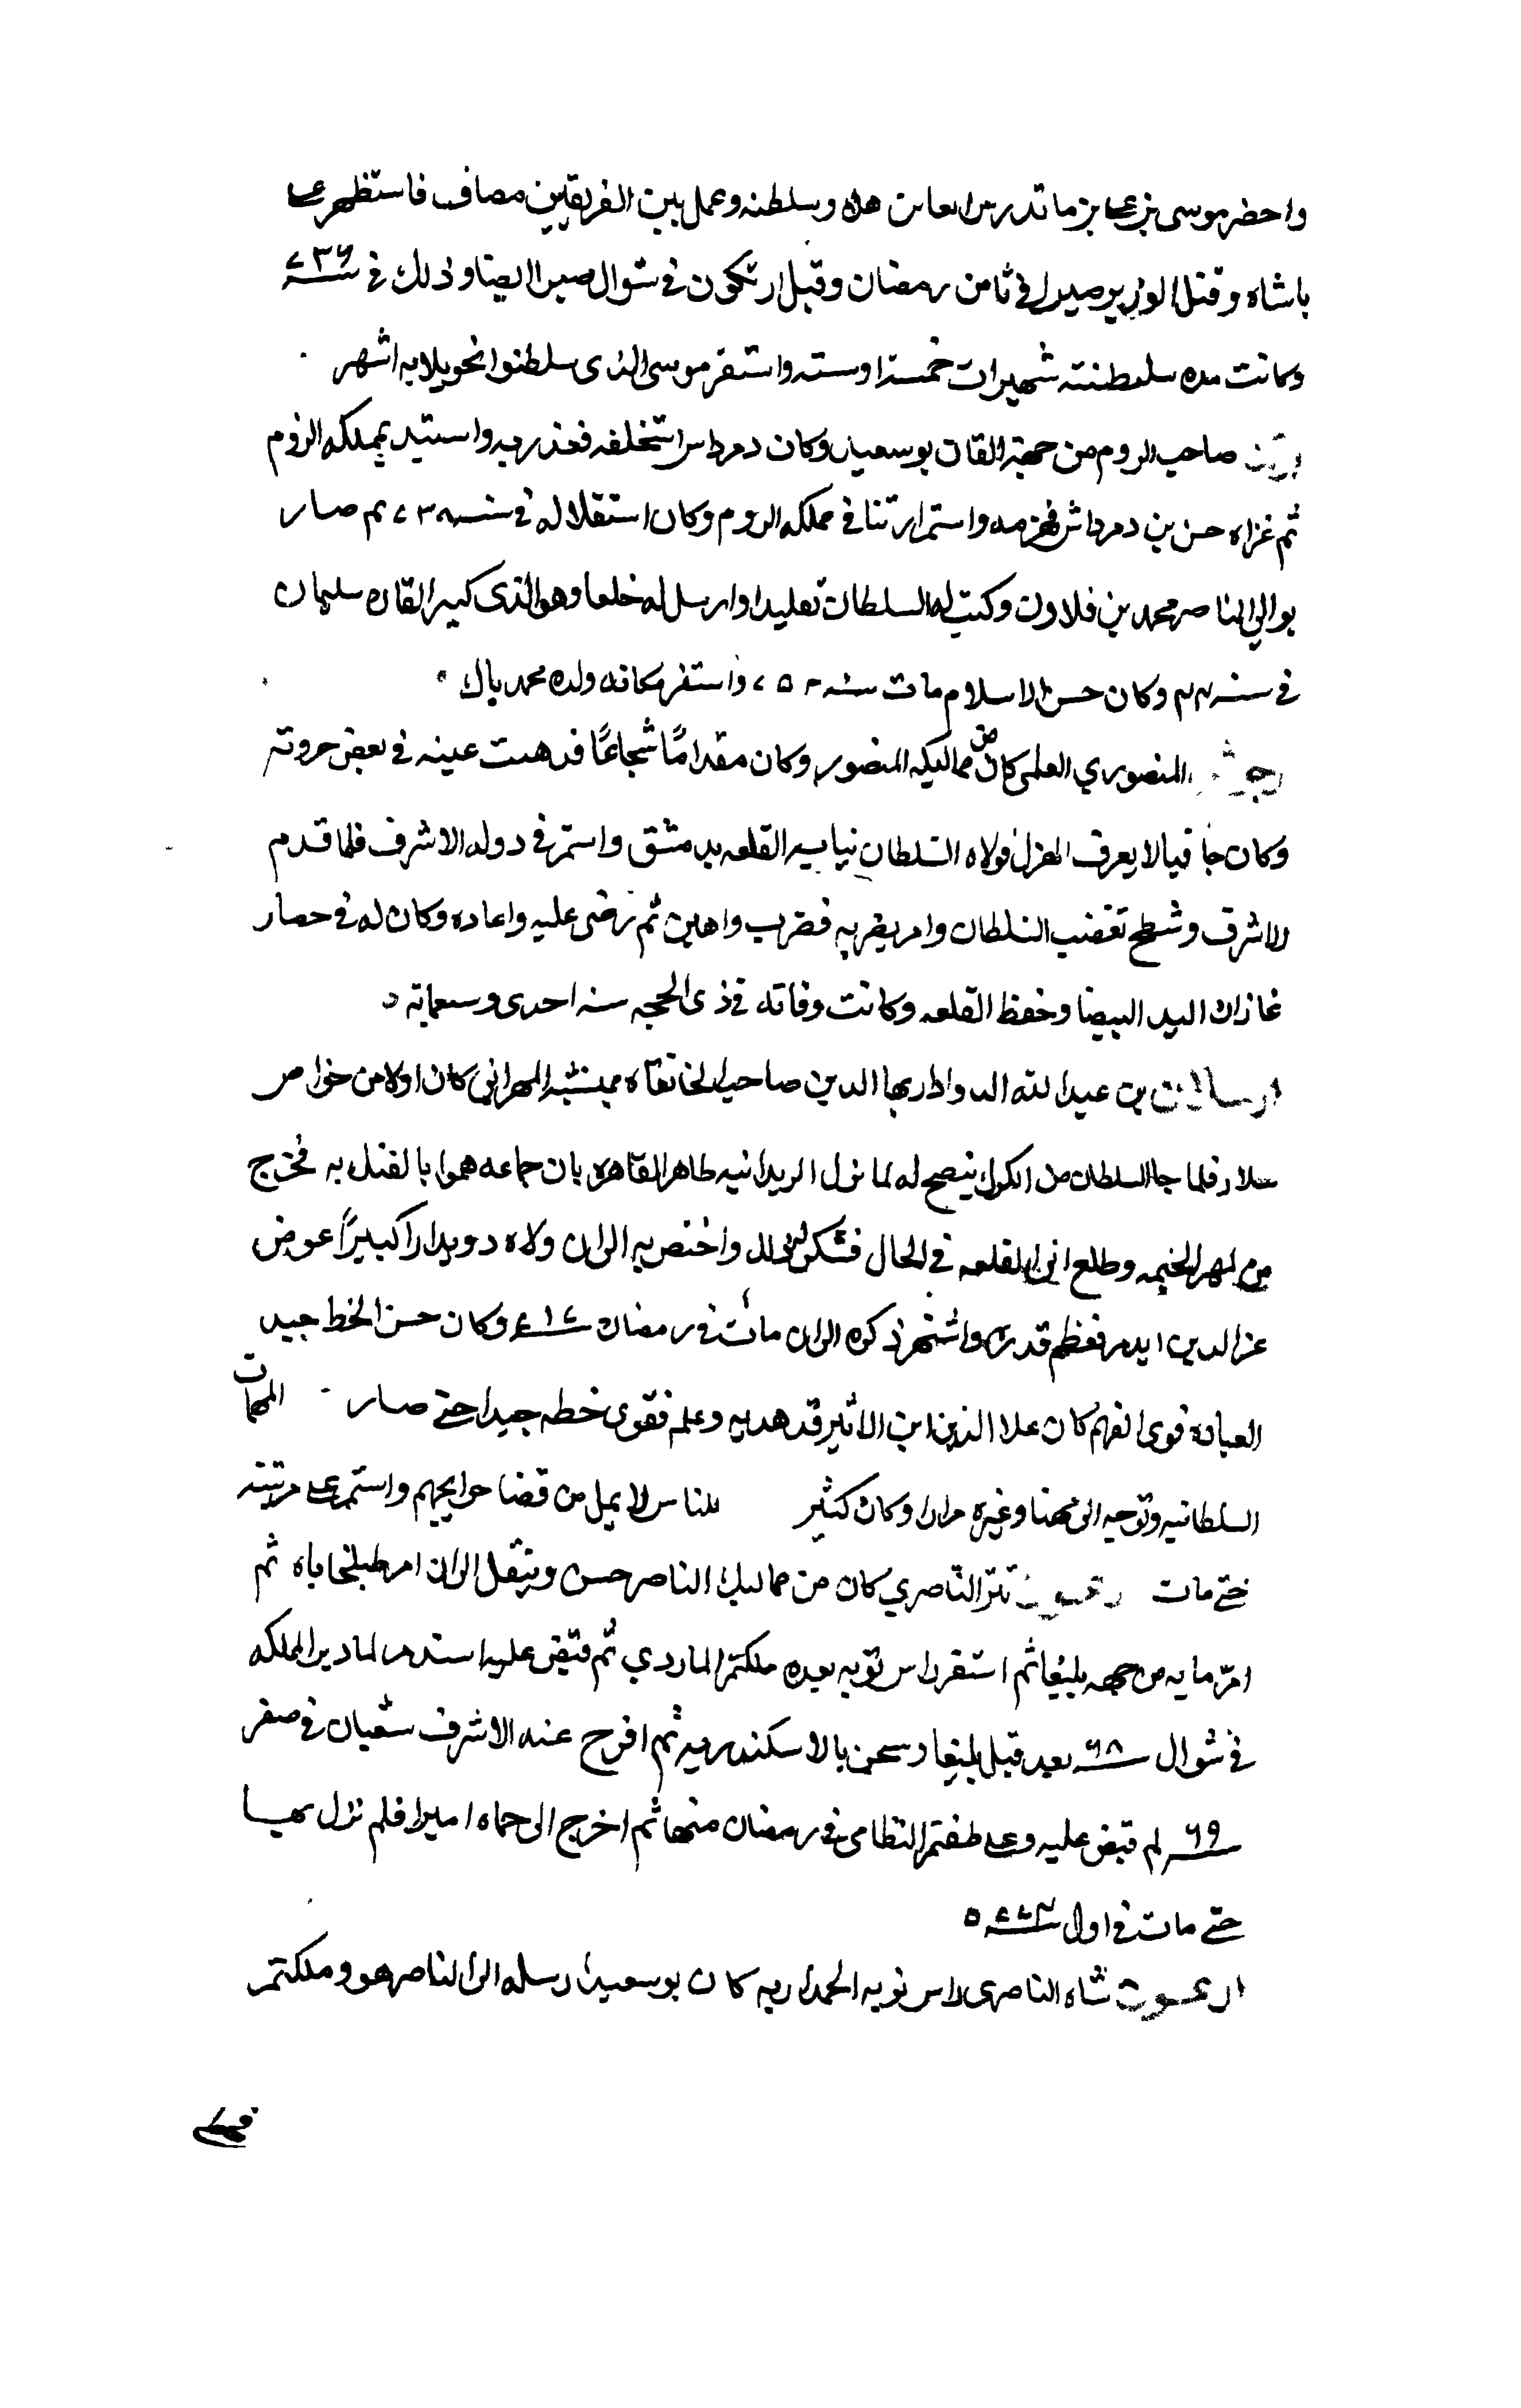 واحضر موسى بن على بن ماتدر بن العاىن هلاو وسلطنه وعمل بين الفريقين مصاف فاستظهر على
باشاه وقتل الوزير صبرا فى ثامن رمضان وقبل ان تكون فى شوال صبرا ايضا وذلك فى سنة ٧٣٦
وكانت مده سلطنته شهيرات خمسة او سته واستقر موسى الذى سلطنوا نحو ثلاثه اشهر
صاحب الروم من جهة القان بوسعيد وكان دمرداس استخلفه فغدر به واستبد بمملكه الروم
ثم غزاه حسن بن دمرداش فهزمه واستمر ارتنا فى مملكه الروم وكان استقلاله فى سنه ٧٣ ثم صار
يوالي الناصر محمد بن قلاون وكتب له السلطان تقليدا وارسل له خلعا وهو الذى كسر القان سليمان
فى سنه ٤٤ وكان حسن الاسلام مات سنه ٧٥٣ واستقر مكانه ولده محمد باك
المنصوري العلمى كان من مماليك المنصور وكان مقداما شجاعا فذهبت عينه فى بعض حروبه
وكان جافيا لا يعرف الهزل فولاه السلطان نيابه القلعه بدمشق واستمر فى دوله الاشرف فلما قدم
الاشرف وشطح تغضب السلطان وامر بضربه فضرب واهين ثم رضى عليه واعاده وكان له فى حصار
غازان اليد البيضا وحفظ القلعه وكانت وفاته فى ذى الحجه سنه احدى وسبعمايه
ارسلان بن عبد الله الدوادار بها الدين صاحب الخانقاه بمنشية المهرانى كان اولا من خواص
سلار فلما جا السلطان من الكرك ينصح له لما نزل الريدانيه ظاهر القاهره بان جماعه هموا بالفتك به فخرج
من ظهر الخيمه وطلع الى القلعه فى الحال فشكر له ذلك واختص به الى ان ولاه دويدارا كبيرا عوض
عز الدين ايدمر فعظم قدره واشتهر ذكره الى ان مات فى رمضان سنة ٧١٤ وكان حسن الخط جيد
العباده قوى الفهم كان علا الدين ابن الاثير قد هذبه وعلمه فقوى خطه جيدا حتى صار المهمات
السلطانيه وتوجه الى مهنا وغيره مرارا وكان كثير للناس لا يمل من قضا حوايجهم واستمر على مرتبته
حتى مات تتر الناصري كان من مماليك الناصر حسن وتنقل الى ان امر طبلخاناه ثم
امر مايه من جهه يلبغا ثم استقر راس نوبه بعده ملكتمر الماردي ثم قبض عليه استدمر لما دبر المملكه
فى شوال سنة ٦٨ بعد قتل يلبغا وسجن بالاسكندريه ثم افرج عنه الاشرف شعبان فى صفر
سنة ٦٩ ثم قبض عليه وعلى طغتمر النظامى فى رمضان منها ثم اخرج الى حماه اميرا فلم نزل بها
حتى مات فى اول سنة ٧٧٣
ارغون شاه الناصرى راس نوبه الجمداريه كان بوسعيد ارسله الى الناصر هو وملكتمر